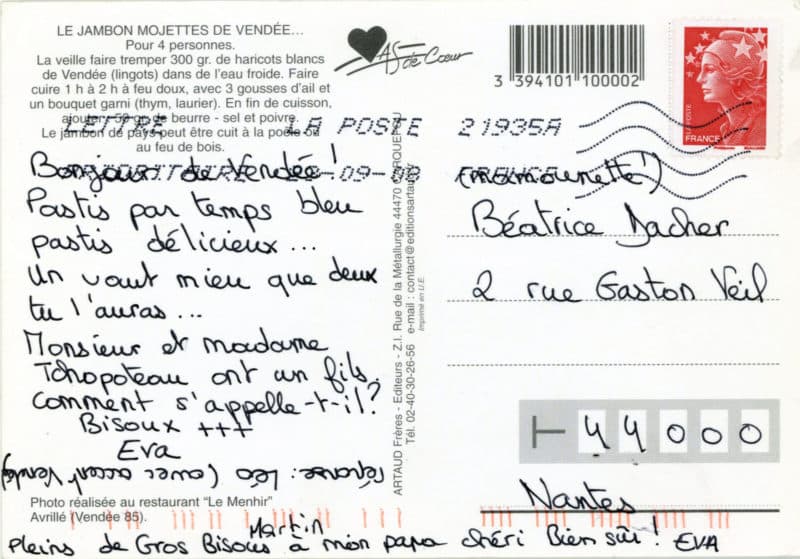 LE JAMBON MOJETTES DE VENDÉE...
Pour 4 personnes.
La veille faire tremper 300 gr. de haricots blancs
de Vendée (lingots) dans de l'eau froide. Faire
cuire 1 h à 2 h à feu doux, avec 3 gousses d'ail et
un bouquet garni (thym, laurier). En fin de cuisson,
ajouter 50 gr. de beurre - sel et poivre.
Le jambon de pays peut être cuit à la poêle ou
au feu de bois.
As de Cœur
3 394101 100002
LA POSTE
FRANCE
LETTRE LA POSTE 21935A
PRIORITAIRE -09-08 FRANCE
Bonjour de Vendée !
Pastis par temps bleu
pastis délicieux ...
Un vaut mieu que deux
tu l'auras ...
Monsieur et madame
Tchopoteau ont un fils,
comment s'appelle-t-il?
Bisoux +++
Eva
réponse: Léo (avec accent Vendée)
Photo réalisée au restaurant "Le Menhir"
Avrillé (Vendée 85).
Martin
Pleins de Gros Bisous à mon papa chéri Bien sûr ! EVA
ARTAUD Frères - Editeurs - Z.I. Rue de la Métallurgie 44470 CARQUEFOU
Tél. 02-40-30-26-56 e-mail : contact@editionsartaud.fr
Imprimé en U.E.
(mamounette !)
Béatrice Dacher
2 rue Gaston Veil
44000
Nantes